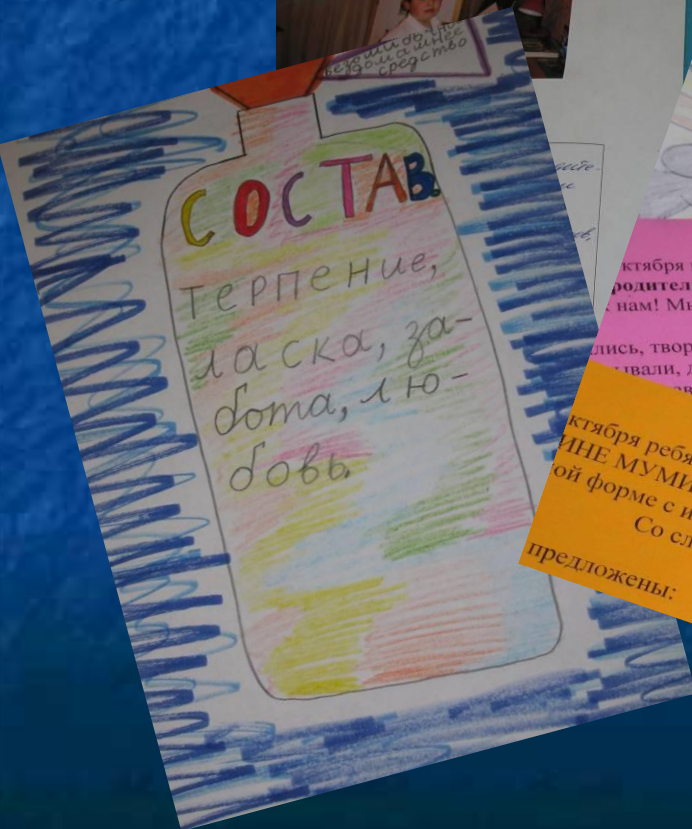 домашнее
средство
СОСТАВ.
терпение,
ласка, за-
бота, лю-
бовь.
ктября
родител
нам! Мы
лись, твор
ывали, д
ктября ребя
ИНЕ МУМИ
ой форме с и
Со сл
предложены: